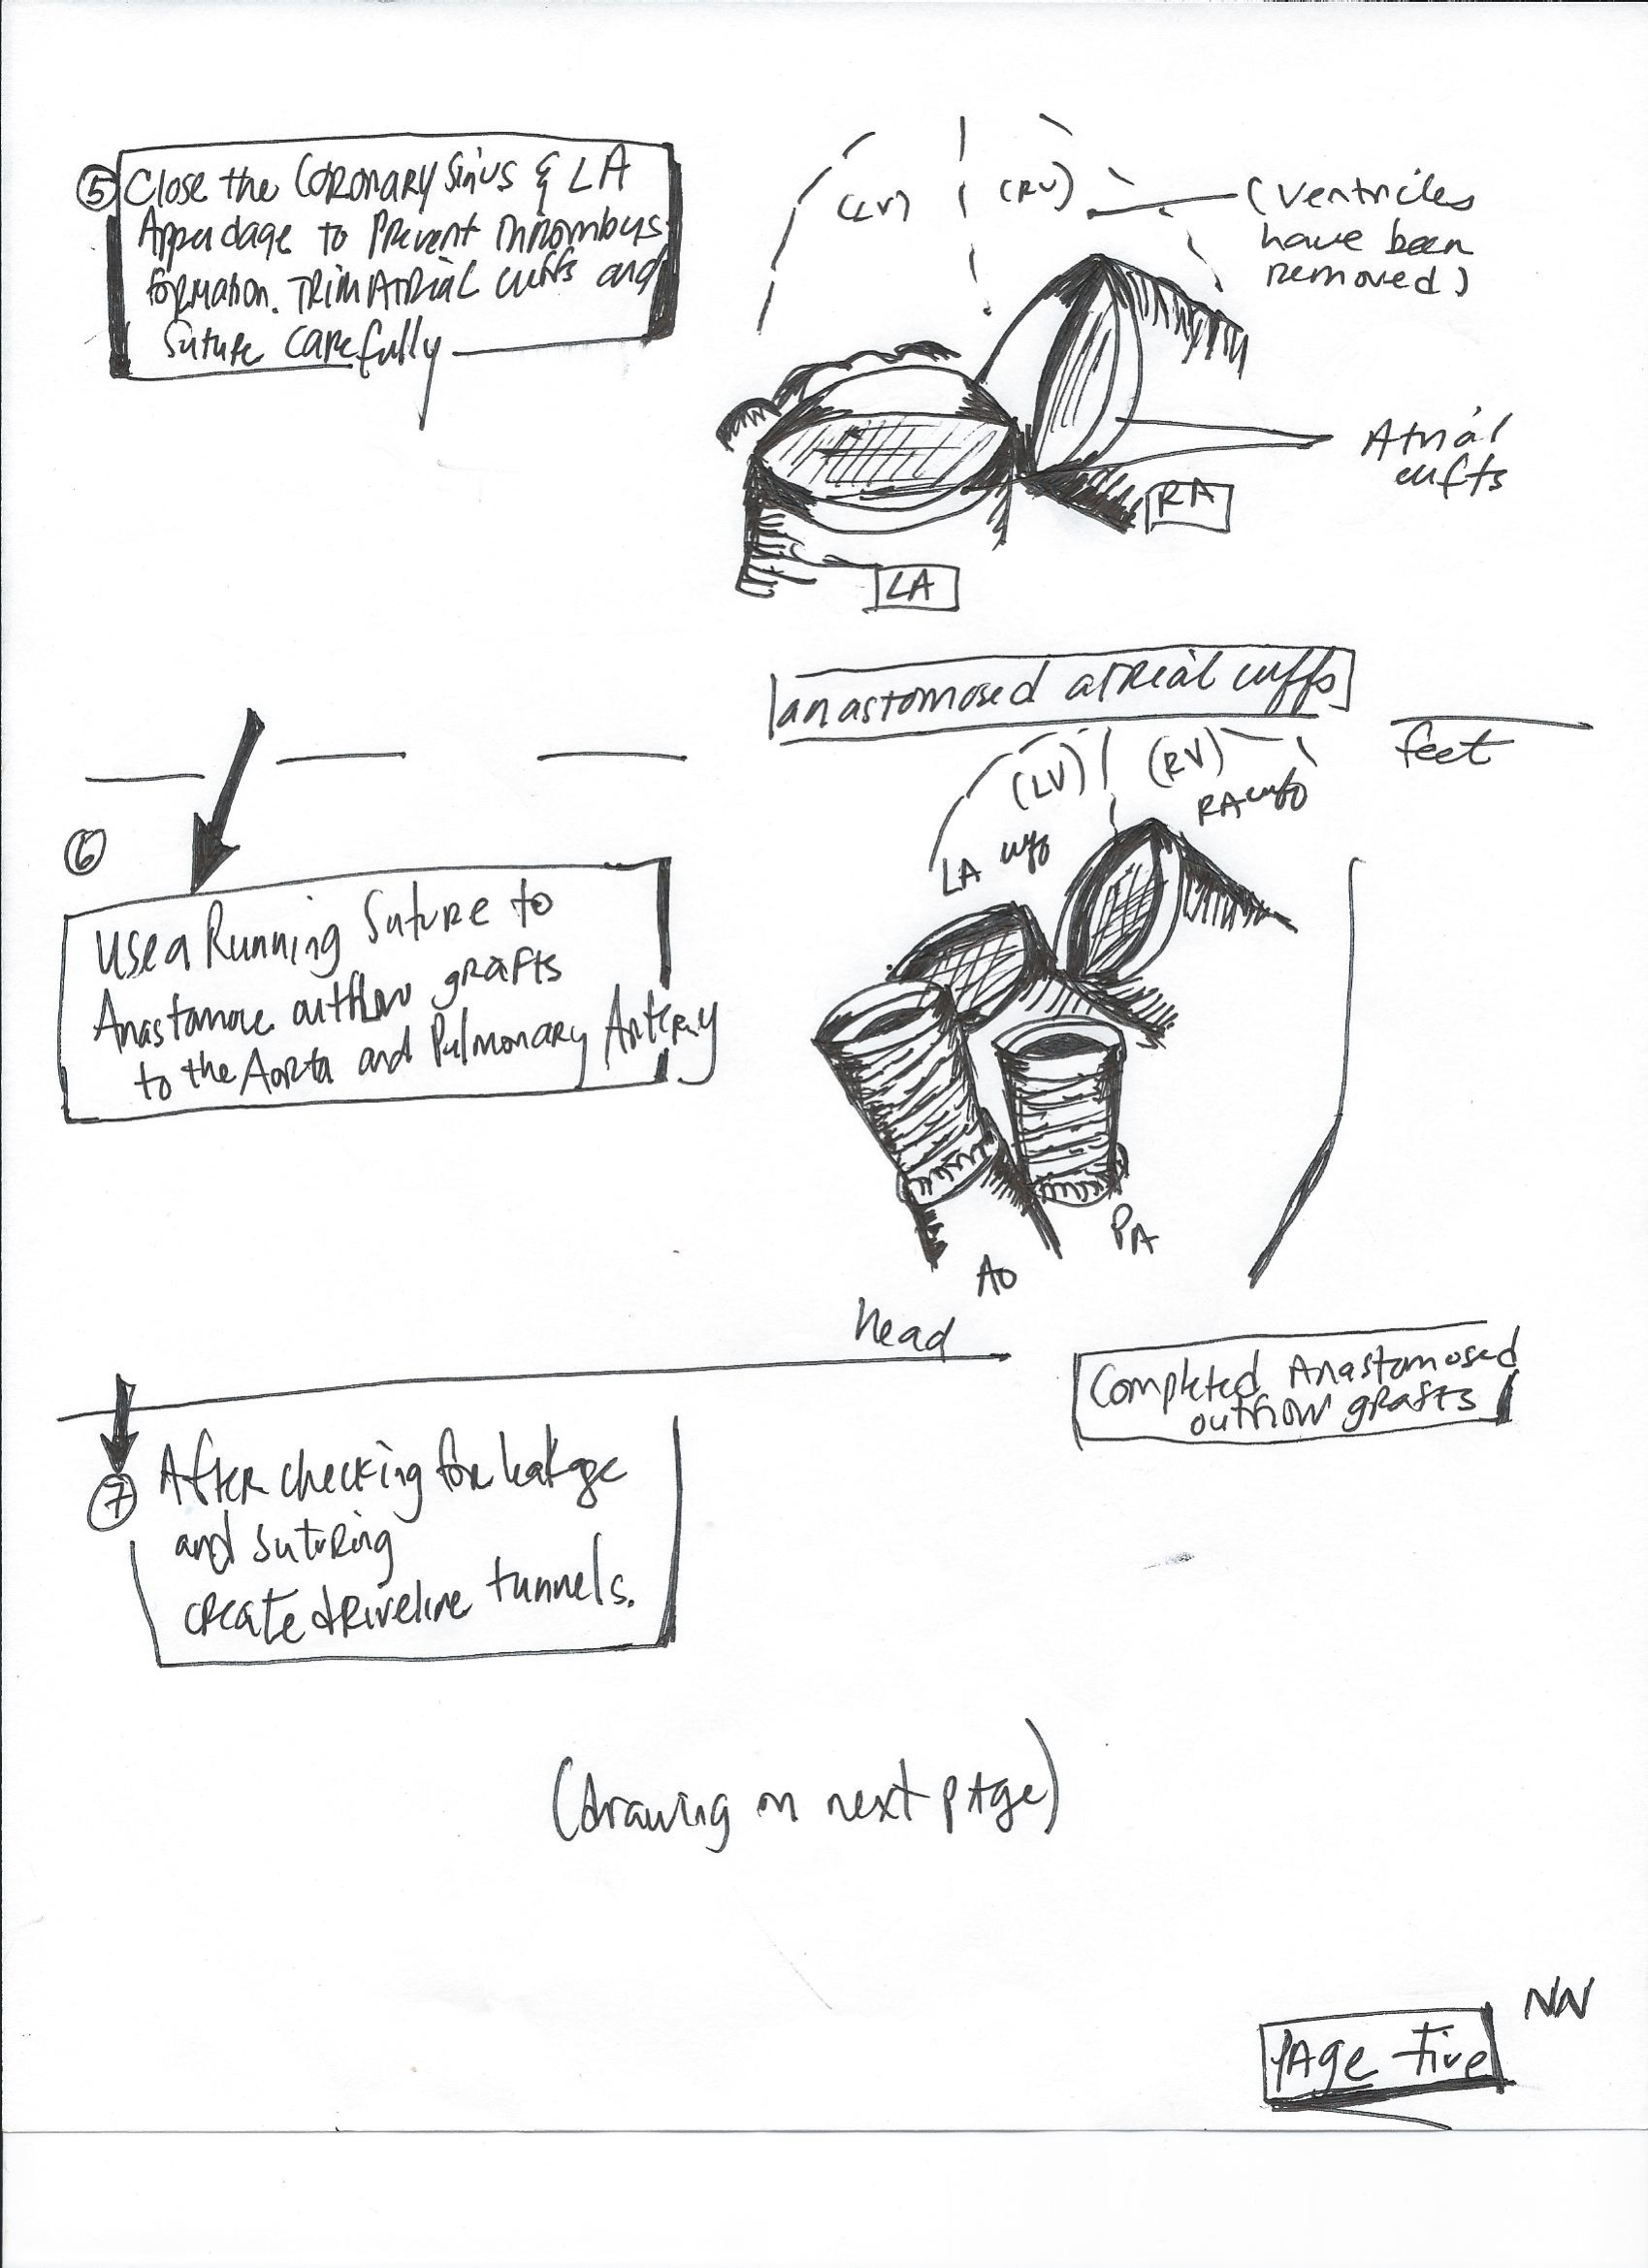 5 Close the Coronary Sinus & LA
Appendage to Prevent Thrombus
formation. Trim Atrial cuffs and
Suture carefully
(LV)
(RV)
(Ventricles
have been
removed)
Atrial
cuffs
RA
LA
anastomosed atrial cuffs
feet
(LV)
(RV)
RA cuff
LA cuff
6
Use a Running Suture to
Anastamose outflow grafts
to the Aorta and Pulmonary Artery
PA
Ao
head
Completed Anastomosed
outflow grafts
7 After checking for leakage
and suturing
create driveline tunnels.
(drawing on next page)
NW
Page Five